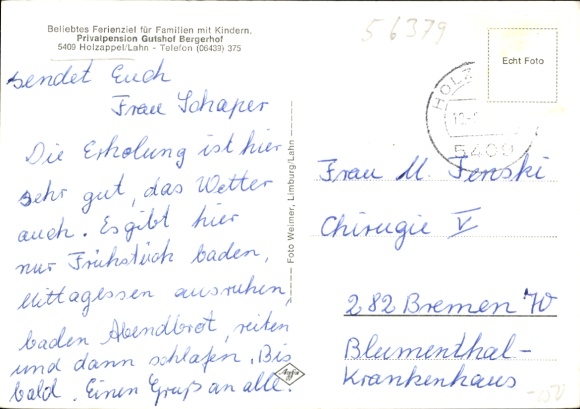 Beliebtes Ferienziel für Familien mit Kindern.
Privatpension Gutshof Bergerhof
5409 Holzappel/Lahn - Telefon (06439) 375
56379
Echt Foto
HOLZ
5409
sendet Euch
Frau Schaper
Die Erholung ist hier
sehr gut, das Wetter
auch. Es gibt hier
nur Frühstück baden,
Mittagessen ausruhen,
baden Abendbrot, reiten
und dann schlafen. Bis
bald. Einen Gruß an alle.
Foto Weimer, Limburg/Lahn
Agfa
Frau M. Fenski
Chirugie V
282 Bremen 70
Blumenthal-
Krankenhaus